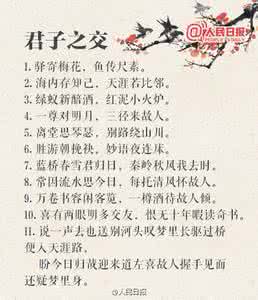 @人民日报
君子之交
1.驿寄梅花，鱼传尺素。
2.海内存知己，天涯若比邻。
3.绿蚁新醅酒，红泥小火炉。
4.一尊对明月，三径来故人。
5.离堂思琴瑟，别路绕山川。
6.胜游朝挽袂，妙语夜连床。
7.蓝桥春雪君归日，秦岭秋风我去时。
8.常因流水思今日，每托清风怀故人。
9.万卷书容闲客览，一樽酒待故人倾。
10.喜有两眼明多交友，恨无十年暇读奇书。
11.说一声去也送别河头叹梦里长驱过桥
便入天涯路，
盼今日归哉迎来道左喜故人握手见而
还疑梦里身。
@人民日报